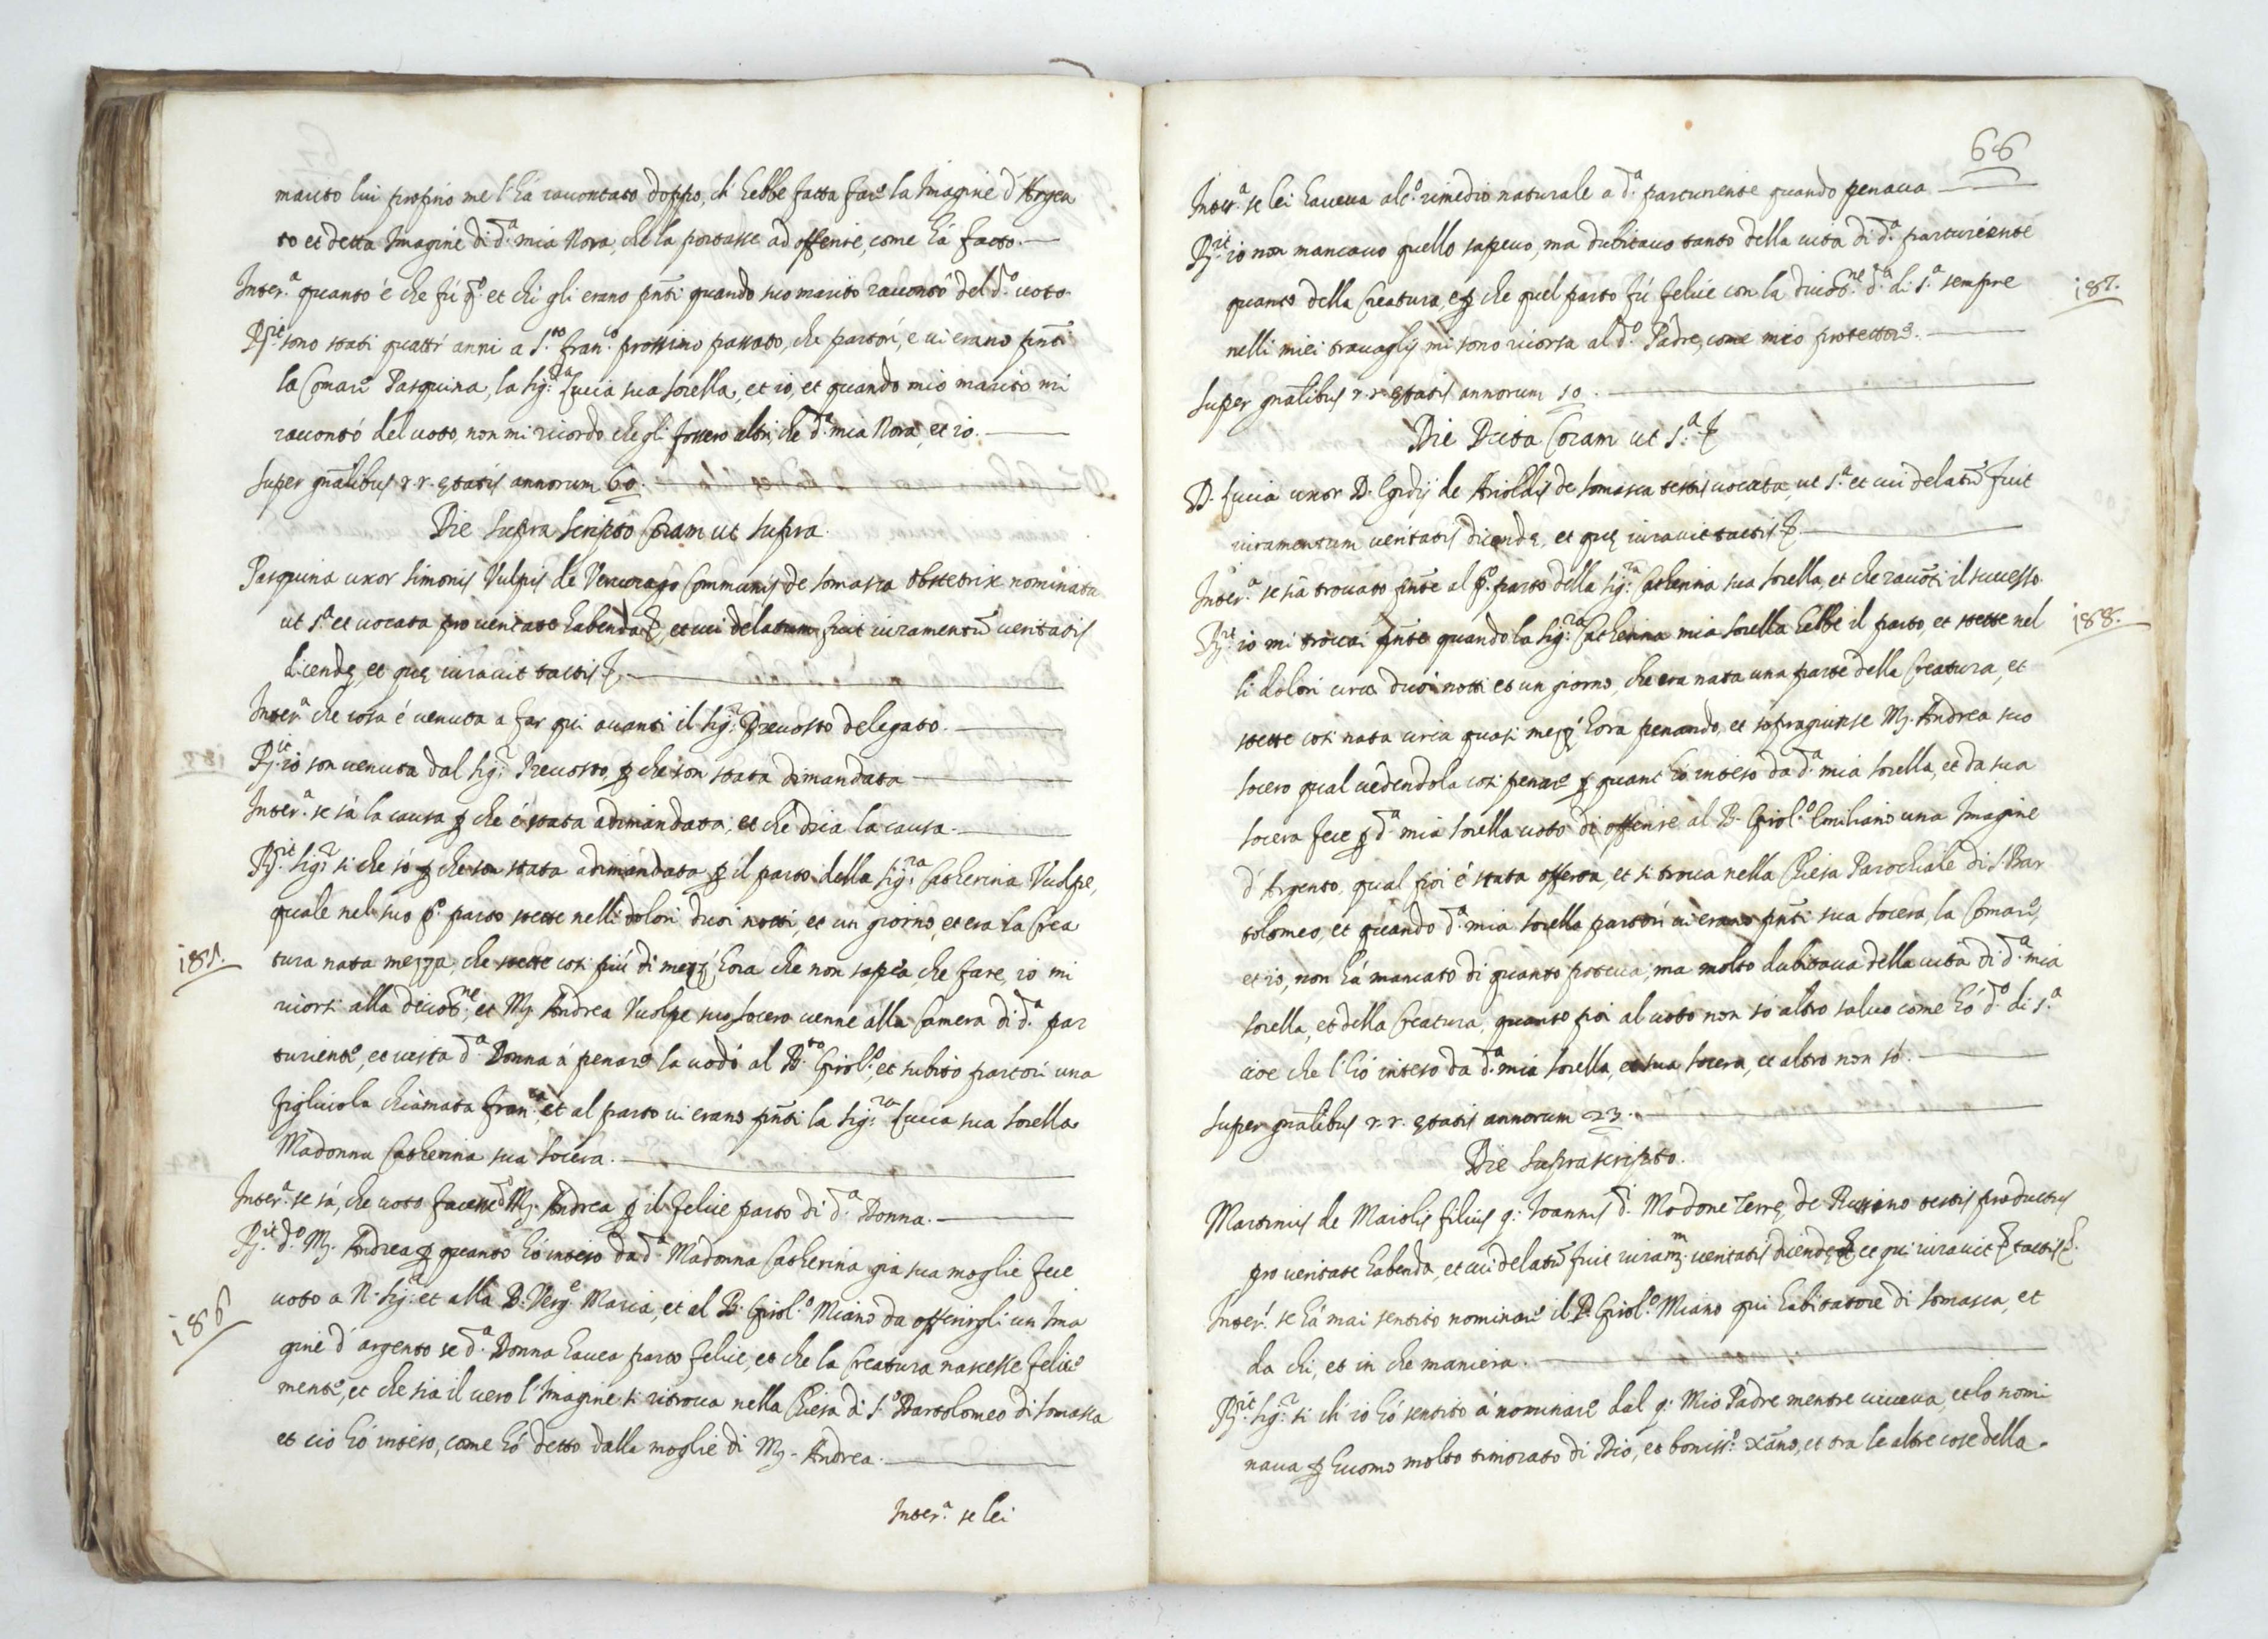 marito lui proprio me l'hà raccontato doppo, ch' hebbe fatta fare la Imagine d'Argen
to et detta Imagine di d.ª mia Nora, che la portasse ad offerire, come hà fatto.
Inter.ª quanto é che fú q.º et chi gli erano pnti quando suo marito raccontò del d.º voto.
R.it sono stati quattr' anni a S.to Fran.co prossimo passato, che partorí, e vi erano pnti
la Comare Pasquina, la Sig.ra Lucia sua sorella, et io, et quando mio marito mi
raccontó del voto, non mi ricordo che gli fossero altri, che d.ª mia Nora, et io.
Super gnalibus r. r. ętatis annorum 60.
Die Supra scripto Coram ut supra.
Pasquina uxor Simonis Vulpis de Vercurago Communis de Somasca obstetrix nominata
ut s.ª et vocata pro veritate habenda &, et cui delatum fuit iuramentũ veritatis
dicendę, et quę iuravit tactis &.
Inter.ª che cosa é venuta a far qui avanti il Sig.r Prevosto delegato.
R.it io son venuta dal Sig.r Prevosto, p che son stata dimandata
Inter.ª se sà la causa p che é stata adimandata, et che dica la causa.
R.it Sig.r si che só p che son stata adimandata p il parto della Sig.ra Catherina Vuolpe,
quale nel suo p.º parto stette nelli dolori duoi notti, et un giorno, et era la Crea
tura nata mezza, che stette cosi piú di mezz' hora che non sapea, che fare, io mi
ricorsi alla divot.ne, et M. Andrea Vuolpe suo socero venne alla Camera di d.ª par
turiente, et vista d.ª Donna á penare la vodó al B.to Girol.º, et subito partorí una
figliuola chiamata Fran.ca, et al parto vi erano pnti la Sig.ra Lucia sua sorella
Madonna Catherina sua socera.
Inter.ª se sà, che voto facesse d.º M. Andrea p il felice parto di d.ª Donna.
R.it d.º M. Andrea p quanto hó inteso da d.ª Madonna Catherina già sua moglie fece
voto a N. Sig.r et alla B. Verg.e Maria, et al B. Girol.º Miano da offerirgli un Ima
gine d'argento se d.ª Donna havea parto felice, et che la Creatura nascesse felice
mente, et che sia il vero l'Imagine si ritrova nella Chiesa di S.º Bartolomeo di Somasca
et ció hó inteso, come hó detto dalla moglie di M. Andrea.
Inter.ª se lei
185.
186
66
Inter.ª se lei haveva alc.º rimedio naturale a d.ª parturiente quando penava
R.it io non mancavo quello sapevo, ma dubitavo tanto della vita di d.ª parturiente
quanto della Creatura, e p che quel parto fú felice con la divot.ne d.ª di s.ª sempre
nelli miei travaglij mi sono ricorsa al d.º Padre, come mio protettore.
Super gnalibus r. r. ętatis annorum 50.
Die Dicta Coram ut s.ª &
D. Lucia uxor D. Egidij de Arioldis de Somasca testis vocata, ut s.ª et cui delatũ fuit
iuramentum veritatis dicendę, et quę iuravit tactis &.
Inter.ª se sia trovato pnte al p.º parto della Sig.ra Catherina sua sorella, et che racconti il successo.
R.it io mi trovai pnte quando la Sig.ra Catherina mia sorella hebbe il parto, et stette nel
li dolori circa duoi notti et un giorno, che era nata una parte della Creatura, et
stette cosi nata circa quasi mezz' hora penando, et sopragiunse M. Andrea suo
socero qual vedendola cosi penare p quant' hó inteso da d.ª mia sorella, et da sua
socera fece p d.ª mia sorella voto di offerire al B. Girol.º Emiliano una Imagine
d'Argento, qual poi é stata offerta, et si trova nella Chiesa Parochiale di S. Bar
tolomeo, et quando d.ª mia sorella partorí vi erano pnti sua socera, la Comare,
et io, non hà mancato di quanto poteva, ma molto dubitava della vita di d.ª mia
sorella, et della Creatura, quanto poi al voto non só altro salvo come hó d.º di s.ª
cioe che l'hó inteso da d.ª mia sorella, et sua socera, et altro non só.
Super gnalibus r. r. ętatis annorum 23.
Die Suprascripto.
Martinus de Maiolis filius q. Ioannis d.i Madone Terrę de Rossino testis productus
pro veritate habenda, et cui delatũ fuit iuram.m veritatis dicendę & et qui iuravit & tactis &.
Inter.ª se hà mai sentito nominare il B. Girol.º Miano qui habitatore di Somasca, et
da chi, et in che maniera.
R.it Sig.r si ch' io hó sentito á nominare dal q. Mio Padre mentre viveva, et lo nomi
nava p huomo molto timorato di Dio, et boniss.º xano, et tra le altre cose della
187.
188.